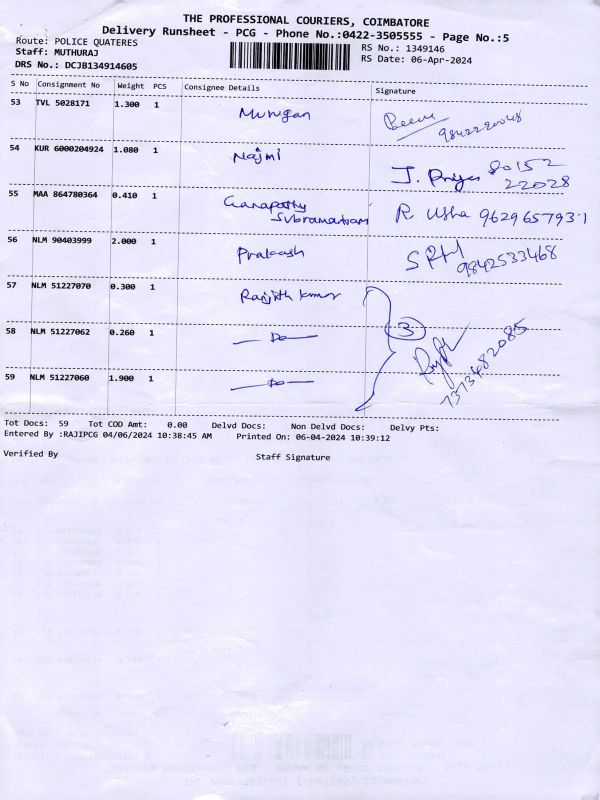 THE PROFESSIONAL COURIERS, COIMBATORE
Delivery Runsheet - PCG - Phone No.:0422-3505555 - Page No.:5
Route: POLICE QUATERES
Staff: MUTHURAJ
DRS No.: DCJB134914605
RS No.: 1349146
RS Date: 06-Apr-2024
S No Consignment No Weight PCS Consignee Details Signature
53 TVL 5028171 1.300 1 Murugan
54 KUR 6000204924 1.080 1 Najmi J. Priya 80152
22028
55 MAA 864780364 0.410 1 Ganapathy
Subramaniam R. Usha 9629657931
56 NLM 90403999 2.000 1 Prakash
9842533468
57 NLM 51227070 0.300 1 Ranjith kumar
58 NLM 51227062 0.260 1 — Do — 3
7373482085
59 NLM 51227060 1.900 1 — Do —
Tot Docs: 59 Tot COD Amt: 0.00 Delvd Docs: Non Delvd Docs: Delvy Pts:
Entered By :RAJIPCG 04/06/2024 10:38:45 AM Printed On: 06-04-2024 10:39:12
Verified By Staff Signature